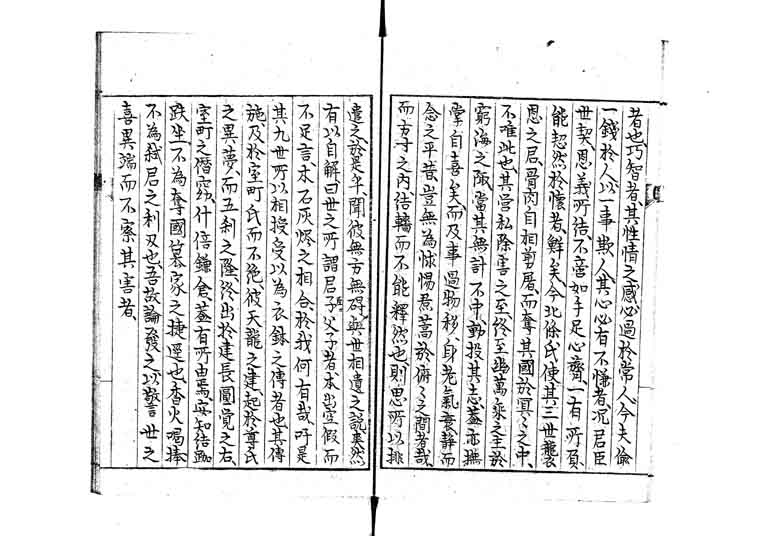 者也、巧智者、其性情之感必過於常人、今夫偷
一錢於人、以一事欺人、其心必有不慊者、況君臣
世契、恩義所結、不啻如手足心膂、一有所負、
能恝然於懷者、鮮矣、今北條氏使其三世襲
恩之君、骨肉自相剪屠、而奪其國於冥々之中、
不唯此也、其營私除害之至、終至竄萬乘之主於
窮海之陬、當其無計不中、動投其志、蓋亦撫
掌自喜矣、而及事過物移、身老氣衰、靜而
念之平昔、豈無為悚惕焄蒿於俯々之間者哉、
而方寸之內、結轖而不能釋然也、則思所以排
遣之、於是乎、聞彼無方無碍、與世相遺之說、恍然
有以自解曰、世之所謂君子父子者、本出空假而
不足言、本石灰燼之相合、於我何有哉、吁是
其九世所以相授受以為衣鉢之傳者也、其傳
施及於室町氏而不絕、彼天龍之建、起於尊氏
之異夢、而五剎之隆、終出於建長圓覺之右、
室町之僭竊、什倍鎌倉、蓋有所由焉、安知結跏
趺坐、不為奪國篡家之捷徑也、香火喝捧
不為弒君之利刃也、吾故論發之、以警言世之
喜異端而不察其害者、